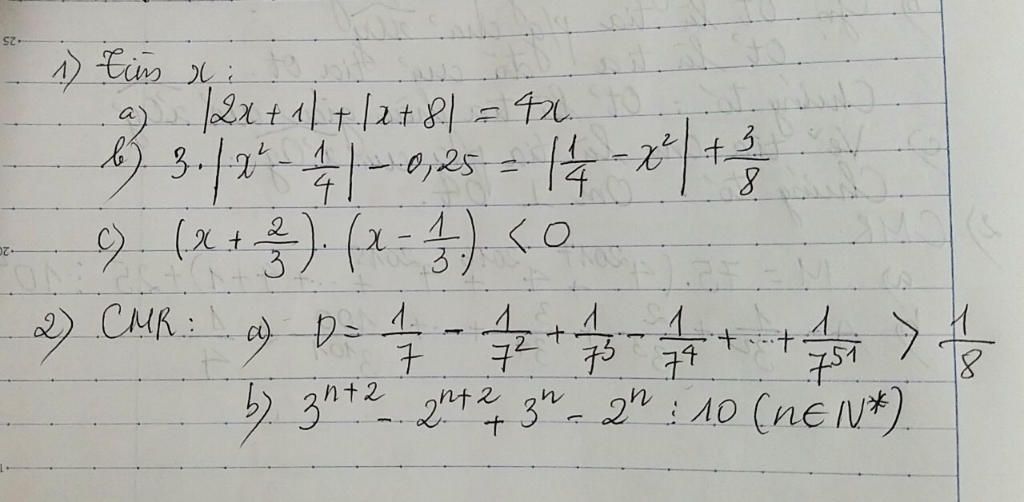 1) Tìm x:
a) |2x + 1| + |x + 8| = 4x
b) 3 . |x² - 1/4| - 0,25 = |1/4 - x²| + 3/8
c) (x + 2/3) . (x - 1/3) < 0
2) CMR: a) D = 1/7 - 1/7² + 1/7³ - 1/7⁴ + ... + 1/7⁵¹ > 1/8
b) 3ⁿ⁺² - 2ⁿ⁺² + 3ⁿ - 2ⁿ ⋮ 10 (n ∈ N*)